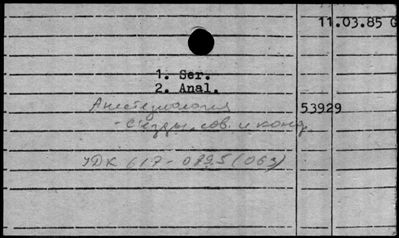 11.03.85 G
1. Ser.
2. Anal.
Анестезиология 53929
- съезды, сов. и конф.
УДК 617-089.5(063)